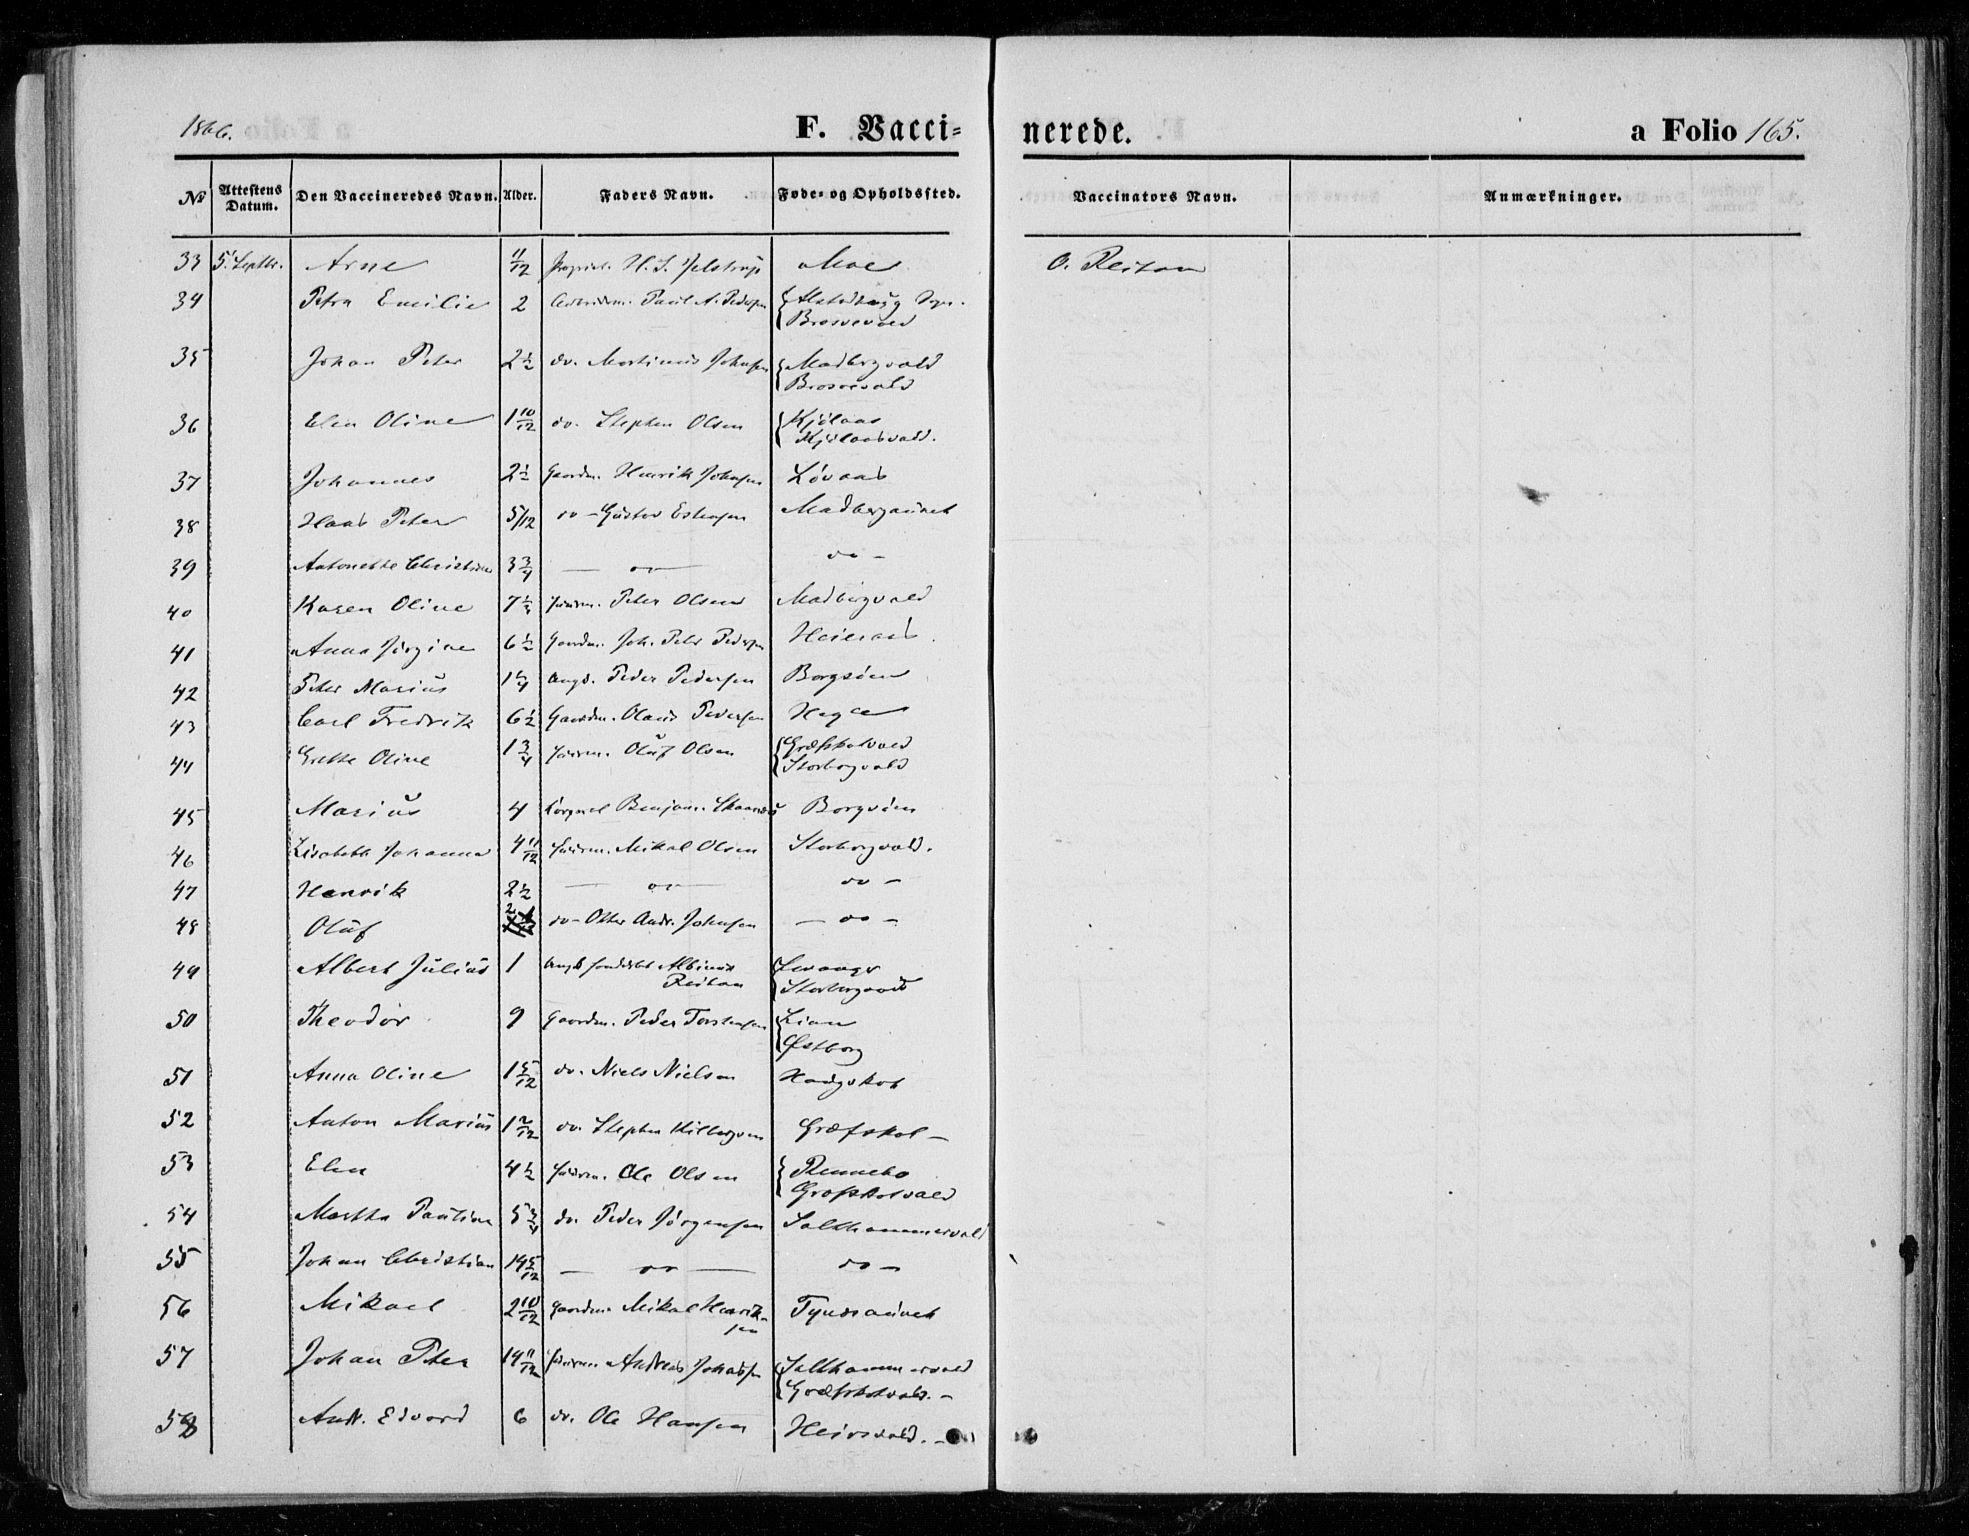 1866.
F. Vacci=
nerede.
a Folio 165.
№ Attestens Datum. Den Vaccineredes Navn. Alder. Faders Navn. Føde= og Opholdssted. Vaccinators Navn. Anmærkninger.
33 5' Septbr. Arne 11/12 Propriet. H. S. Jelstrup Moe O. Reitan
34 Petra Emilie 2 Paul A. Pedersen
35 Johan Peter 2½ do. Martinus Johnsen Madbergvald
36 Elen Oline 1 10/12 do. Stephen Olsen Kjølaas
Kjølaasvald.
37 Johannes 2½ Gaardm. Henrik Johnsen Løvaas
38 Hans Peter 5/12 do - Gustav Estensen Madbergaunet
39 Antonette Christine 3¾ — do — do -
40 Karen Oline 7½ Huusm. Peter Olsen Madbergvald
41 Anna Jørgine 6½ Gaardm. Joh. Peter Pedersen
42 Peter Marius 1¼ Ungk. Peder Pedersen Borgsøen
43 Carl Fredrik 6½ Gaardm. Olaus Pedersen
44 Grethe Oline 1¾ Huusm. Oluf Olsen Græfskotvald
Storborgvald
45 Marius 4 Benjam. Borgsøen
46 Lisabeth Johanna 4 11/12 Huusm. Mikal Olsen Storborgvald.
47 Henrik 2½ — do — do -
48 Oluf 2 do - Otter Andr. Johnsen — do -
49 Albert Julius 1 Albinus
Reitan
Levanger
50 Theodor 9 Gaardm. Peder Torstensen Lian
Østborg
51 Anna Oline 1 5/12 do. Niels Nielsen
52 Anton Marius 1 2/12 do. Stephen Græfskot -
53 Elen 4½ Huusm. Ole Olsen Rennebo
Græfskotvald
54 Martha Pauline 5¾ do. Peder Jørgensen Salthammervald
55 Johan Christian 14 5/12 — do — do -
56 Mikael 2 10/12 Gaardm. Mikal Henrik-
sen
57 Johan Peter 14 11/12 Huusm. Andreas Salthammervald
Græfskotvald. -
58 Andr. Edvard 6 do. Ole Hansen